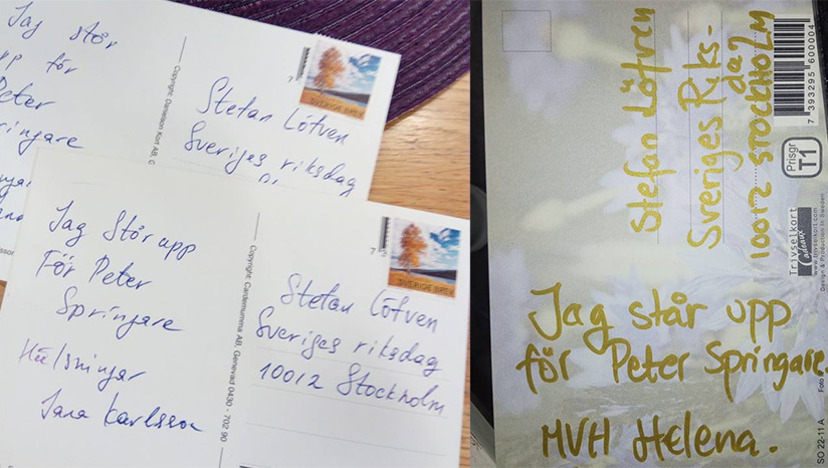 Jag står
för
Peter
Copyright Cardesson Kort AB, G
7
SVERIGE BREV
Stefan Löfven
Sveriges riksdag
Jag Står upp
För Peter
Springare
Hälsningar
Jana Karlsson
Copyright: Cardemumma AB, Genevad 0430 - 702 90
7
SVERIGE BREV
Stefan Löfven
Sveriges riksdag
10012 Stockholm
Stefan Löfven
Sveriges Riks-
dag
10012 STOCKHOLM
7 393295 600004
Prisgr
T1
Trivselkort
Cadeaux
www.trivselkort.com
Design & Production in Sweden
Jag står upp
för Peter Springare.
MVH Helena.
SO 22-11 A
Foto